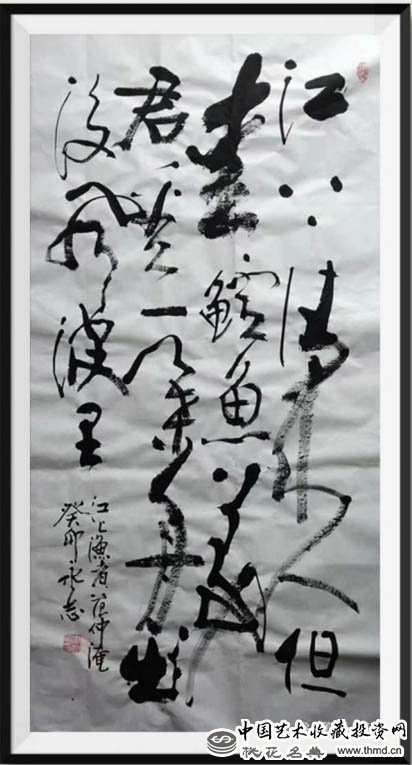 江上往来人但
愛鱸魚美
君看一葉舟出
没風波里
江上漁者范仲淹
癸卯永志
中国艺术收藏投资网
桃花名典 www.thmd.cn